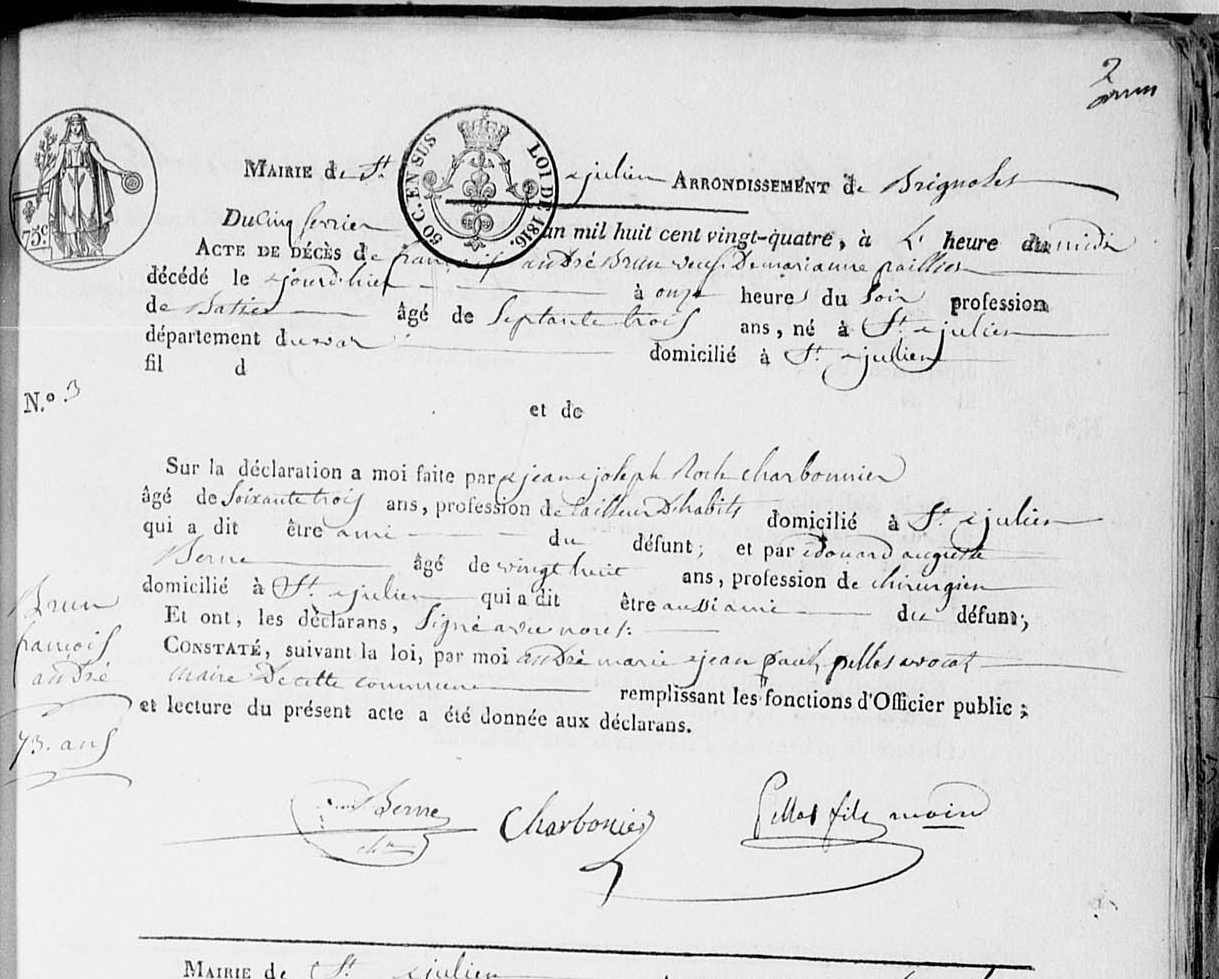 2
75.c
60 C. EN SUS LOI DE 1816.
MAIRIE de St julien ARRONDISSEMENT de Brignoles
Du cinq fevrier an mil huit cent vingt-quatre, à heure midi
ACTE DE DÉCÈS de françois andré Brun veuf De marianne paillier
décédé le jourdhier à onze heures du Soir profession
de âgé de Septante trois ans, né à St julien
département du var domicilié à St julien
fil d
N.o 3
et de
Sur la déclaration a moi faite par jean joseph Roch charbonnier
âgé de Soixante trois ans, profession de tailleur D'habits domicilié à St julien
qui a dit être ami du défunt; et par édouard auguste
Berne âgé de vingt huit ans, profession de chirurgien
domicilié à St julien qui a dit être aussi ami du défunt;
Et ont, les déclarans, Signé avec nous
CONSTATÉ, suivant la loi, par moi andré marie jean paul pellas avocat
maire De cette commune remplissant les fonctions d'Officier public;
et lecture du présent acte a été donnée aux déclarans.
Brun
françois
andré
73. ans
Berne Charbonier Pellas fils maire
MAIRIE de St julien